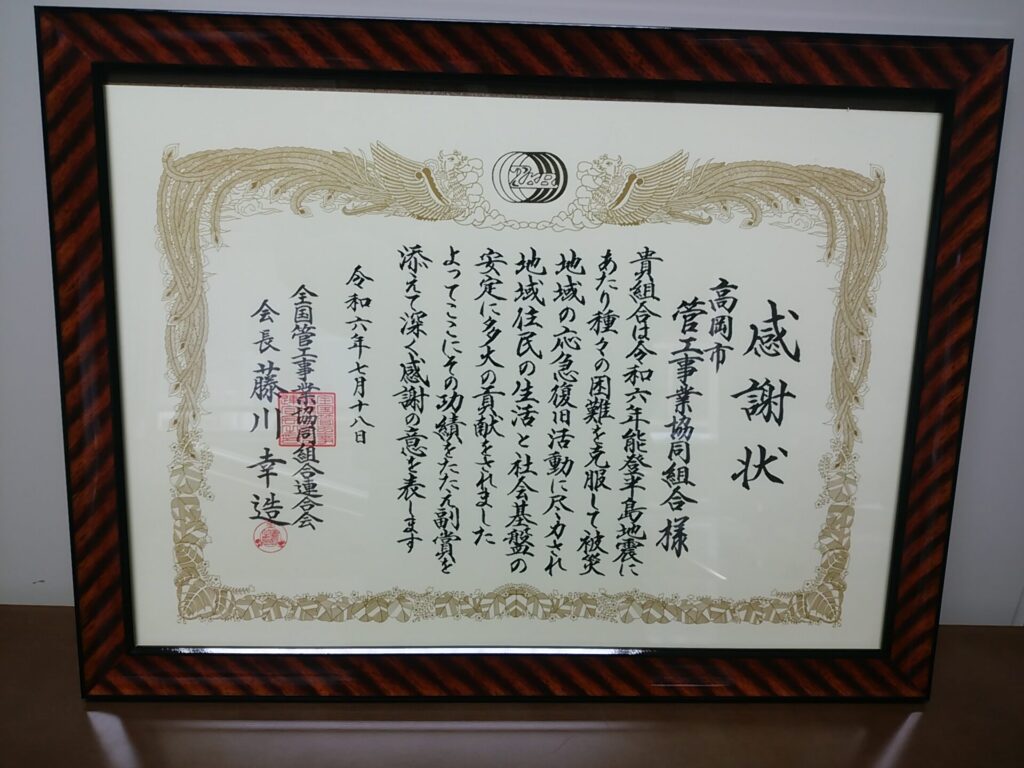 感謝状
高岡市
管工事業協同組合 様
貴組合は令和六年能登半島地震に
あたり種々の困難を克服して被災
地域の応急復旧活動に尽力され
地域住民の生活と社会基盤の
安定に多大の貢献をされました
よってここにその功績をたたえ副賞を
添えて深く感謝の意を表します
令和六年七月十八日
全国管工事業協同組合連合会
会長 藤川幸造